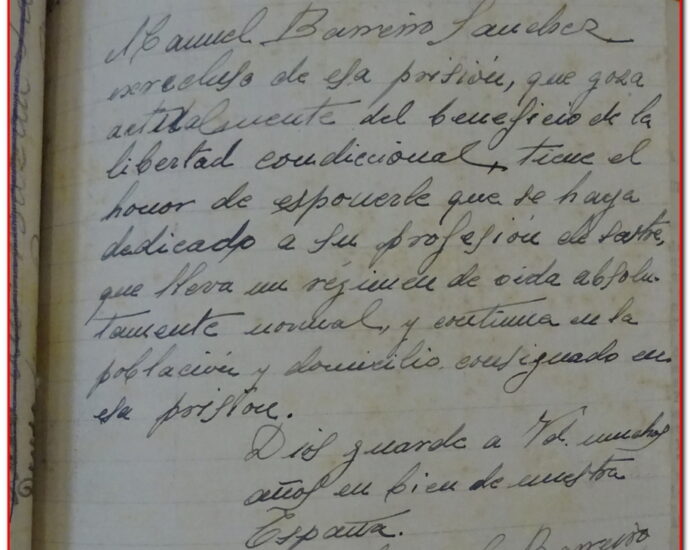 Manuel Barreiro Sanchez
exrecluso de esa prisión, que goza
actualmente del beneficio de la
libertad condiccional, tiene el
honor de esponerle que se haya
dedicado a su profesión de sastre,
que lleva un régimen de vida absolu-
tamente normal, y continua en la
población y domicilio consignado en
esa prision.
Dios guarde a Vd. muchos
años en bien de nuestra
España.
Barreiro